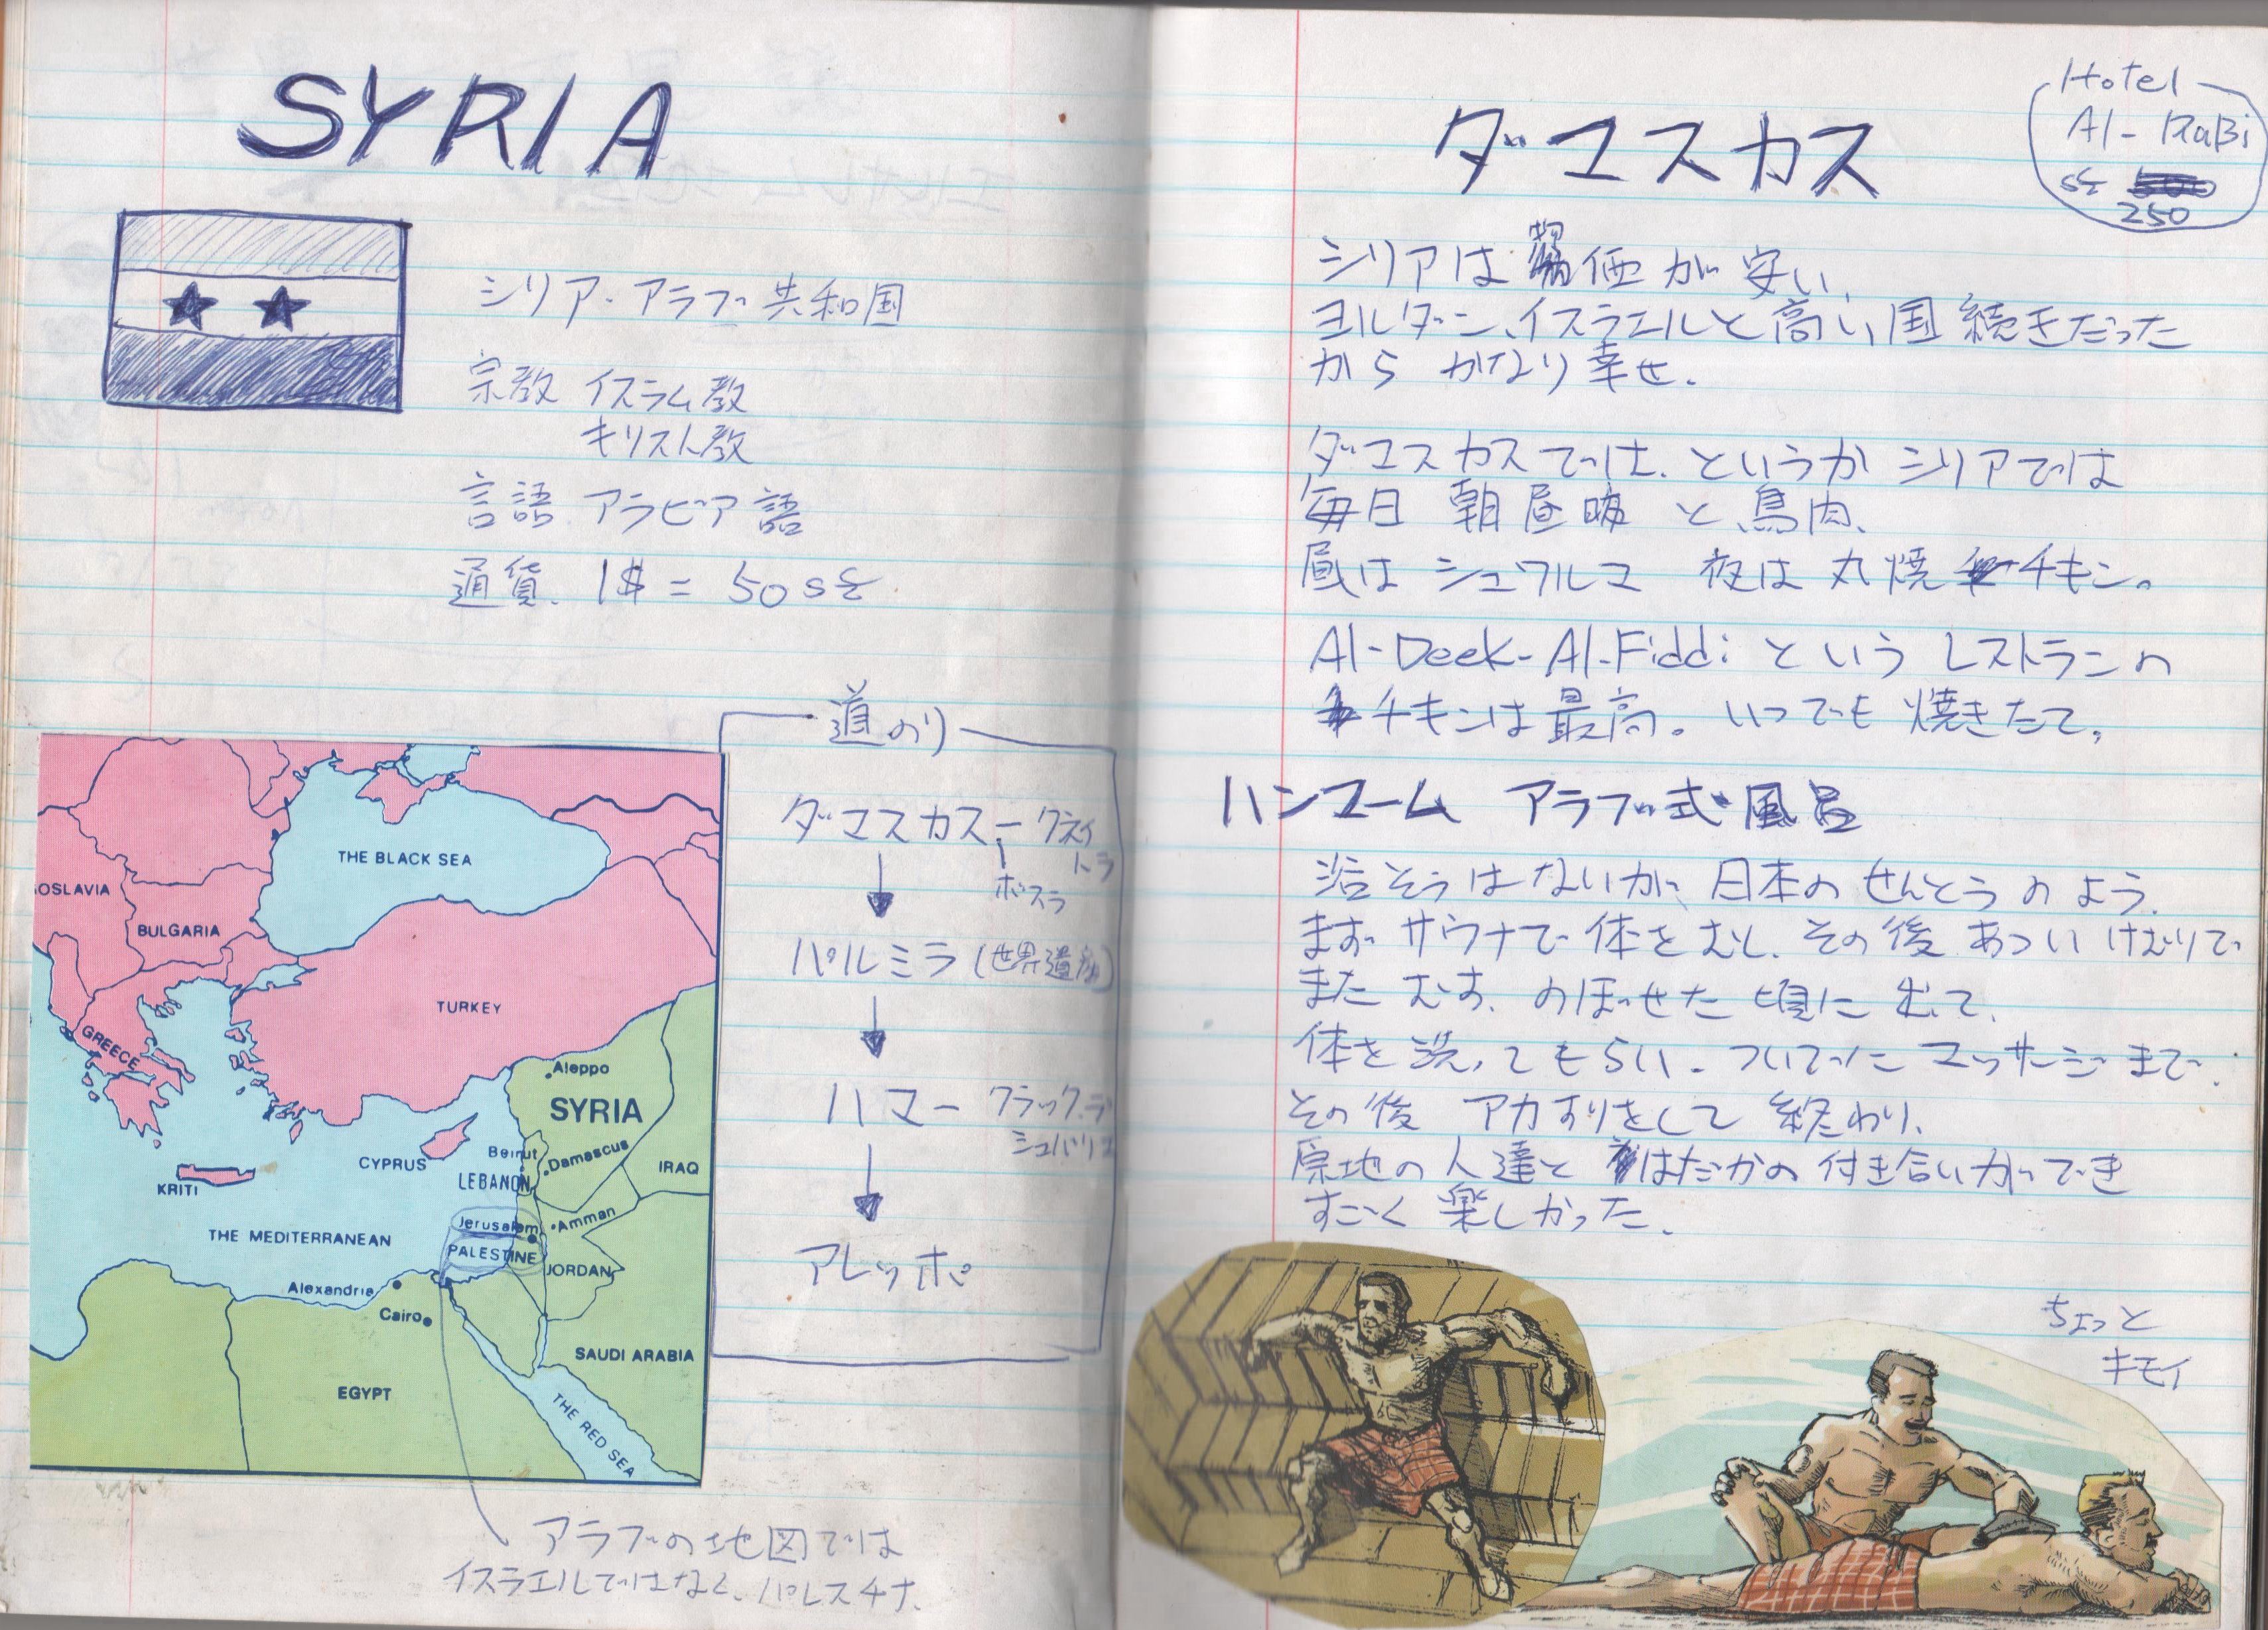 SYRIA
シリア・アラブ共和国
宗教 イスラム教
キリスト教
言語 アラビア語
通貨. 1$ = 50s£
道のり
ダマスカス - クネイ
トラ
ボスラ
パルミラ (世界遺産)
ハマ - クラック・デ
シュバリエ
アレッポ
THE BLACK SEA
OSLAVIA
BULGARIA
TURKEY
GREECE
Aleppo
SYRIA
Beirut
Damascus
CYPRUS
LEBANON
IRAQ
KRITI
Jerusalem
Amman
THE MEDITERRANEAN
PALESTINE
JORDAN
Alexandria
Cairo
SAUDI ARABIA
EGYPT
THE RED SEA
アラブの地図では
イスラエルではなく、パレスチナ.
Hotel
Al-RaBi
s£ 500
250
ダマスカス
シリアは物価が安い、
ヨルダン、イスラエルと高い国続きだった
から かなり幸せ.
ダマスカスでは、というか シリアでは
毎日 朝昼晩 と、鳥肉、
昼は シュワルマ 夜は 丸焼チキン。
Al-Deek-Al-Fiddi という レストランの
チキンは最高。いつでも焼きたて。
ハンマーム アラブ式風呂
浴そうはないが、日本の せんとうのよう.
まず サウナで 体を むし、その後 あつい けむりで
また むす、のぼせた 頃に 出て、
体を 洗ってもらい、ついでに マッサージまで.
その後 アカすりをして 終わり、
原地の 人達と はだかの 付き合いができ
すごく 楽しかった、
ちょっと
キモイ